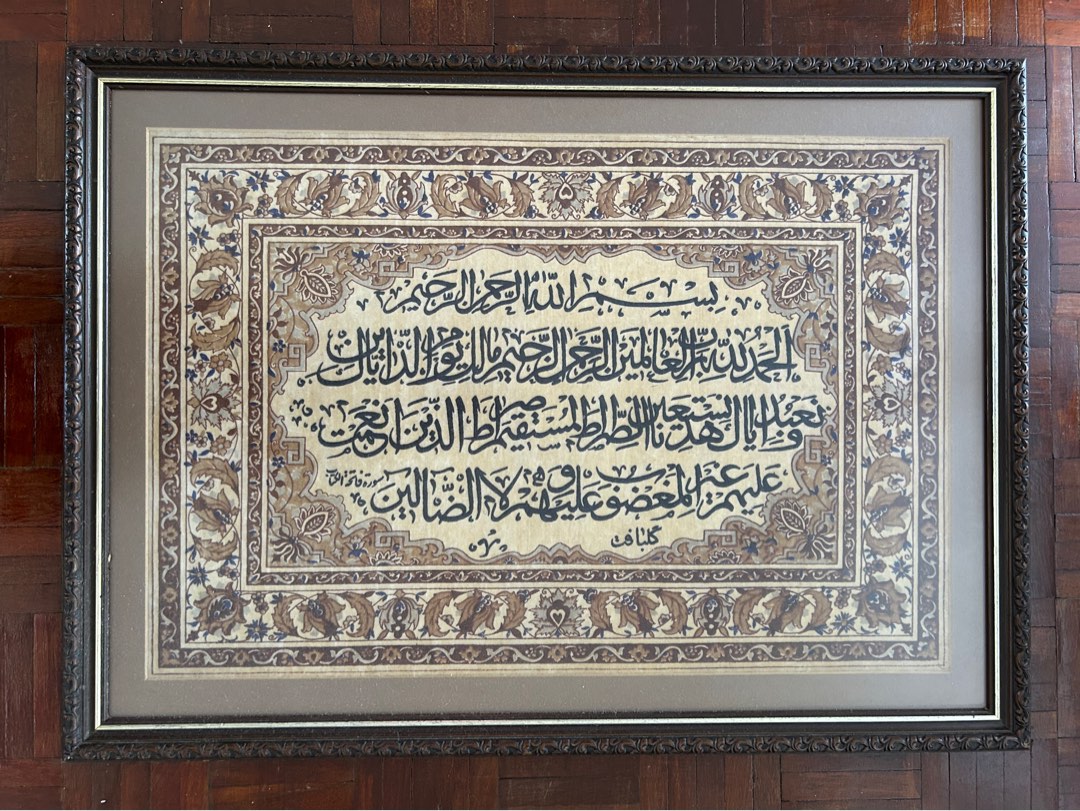 بسم الله الرحمن الرحيم
الحمد لله رب العالمين الرحمن الرحيم مالك يوم الدين اياك
نعبد واياك نستعين اهدنا الصراط المستقيم صراط الذين انعمت
عليهم غير المغضوب عليهم ولا الضالين
سورة فاتحة
گلبافت